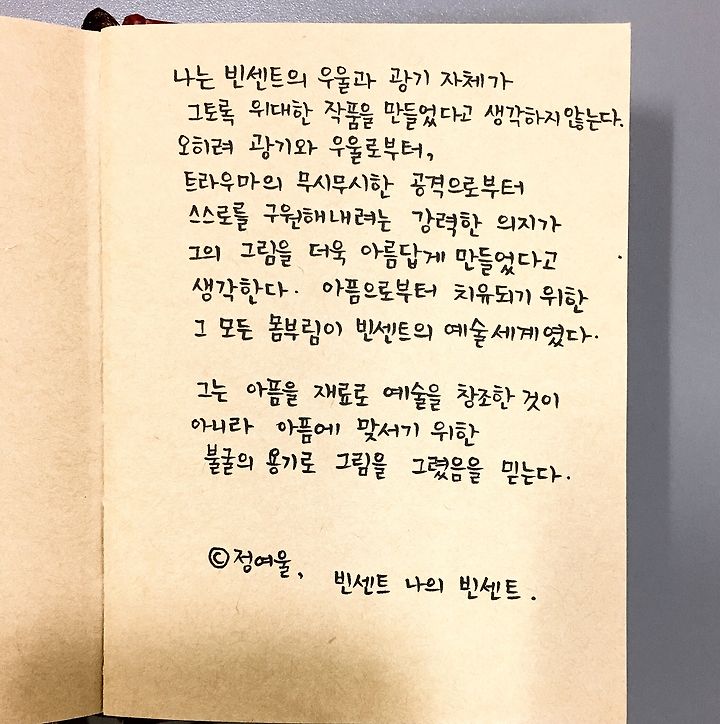 나는 빈센트의 우울과 광기 자체가
그토록 위대한 작품을 만들었다고 생각하지 않는다.
오히려 광기와 우울로부터,
트라우마의 무시무시한 공격으로부터
스스로를 구원해내려는 강력한 의지가
그의 그림을 더욱 아름답게 만들었다고
생각한다. 아픔으로부터 치유되기 위한
그 모든 몸부림이 빈센트의 예술세계였다.
그는 아픔을 재료로 예술을 창조한 것이
아니라 아픔에 맞서기 위한
불굴의 용기로 그림을 그렸음을 믿는다.
©정여울, 빈센트 나의 빈센트.